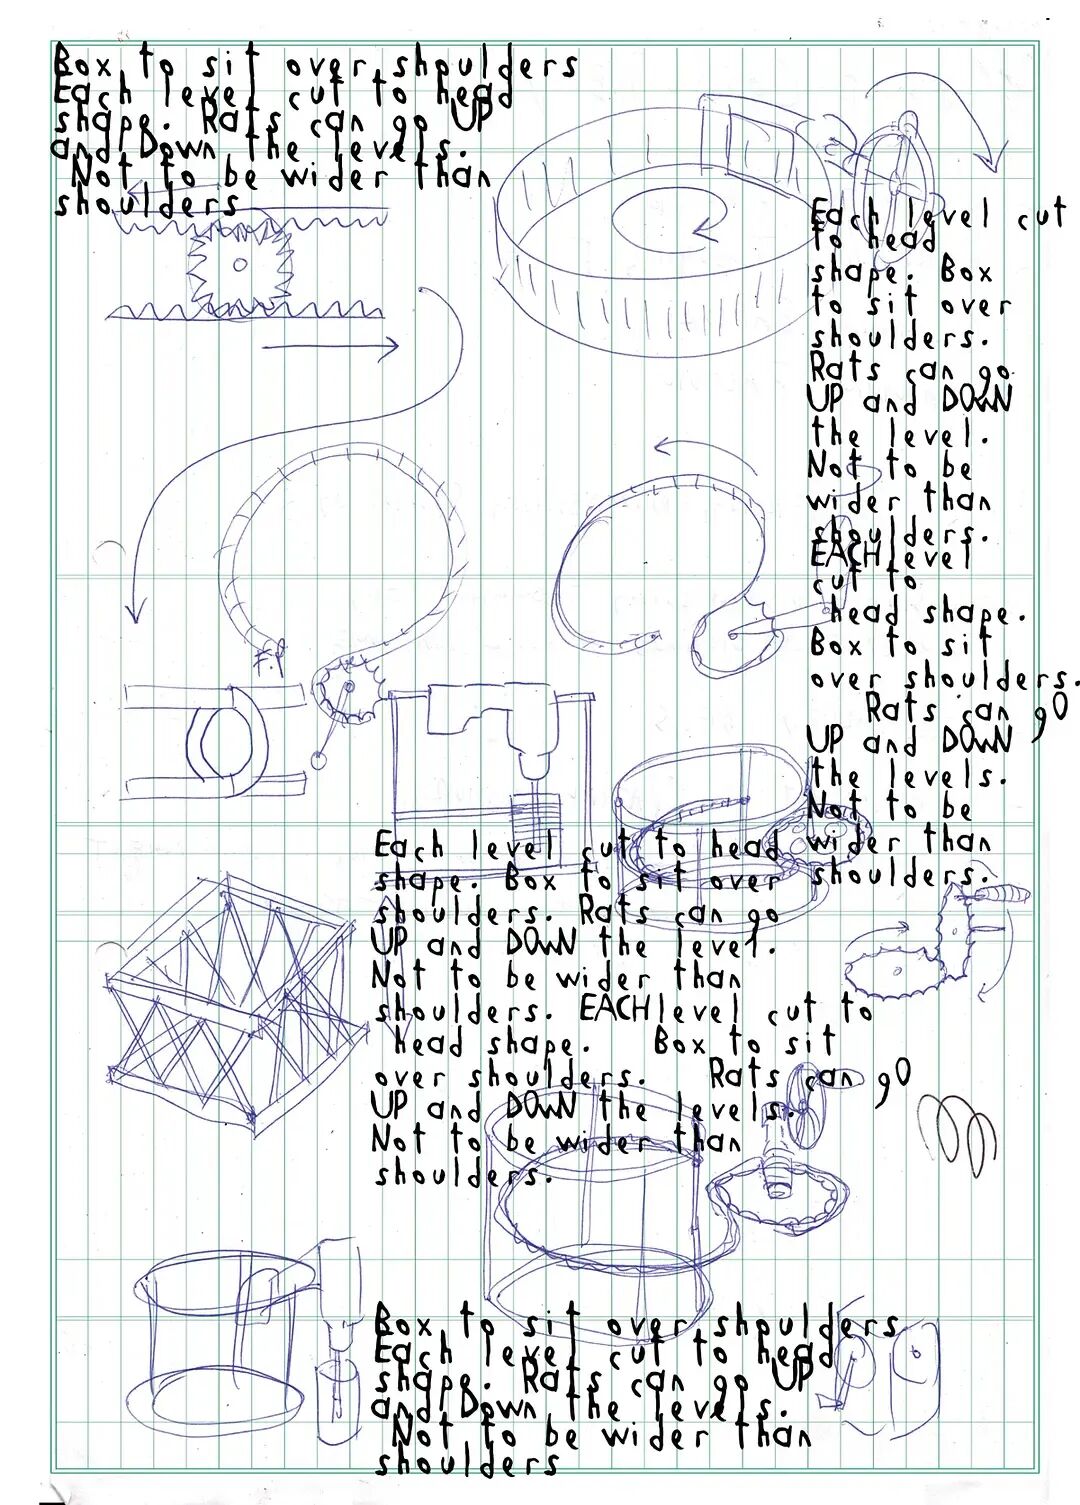 Box to sit over shoulders
Each level cut to head
shape. Rats can go UP
and Down the levels.
Not to be wider than
shoulders
Each level cut
to head
shape. Box
to sit over
shoulders.
Rats can go
UP and DOWN
the level.
Not to be
wider than
shoulders.
EACH level
cut to
head shape.
Box to sit
over shoulders.
Rats can gO
UP and DOWN
the levels.
Not to be
wider than
shoulders.
F.P
Each level cut to head
shape. Box to sit over
shoulders. Rats can go
UP and DOWN the level.
Not to be wider than
shoulders. EACH level cut to
head shape. Box to sit
over shoulders. Rats can gO
UP and DOWN the levels.
Not to be wider than
shoulders.
Box to sit over shoulders
Each level cut to head
shape. Rats can go UP
and Down the levels.
Not to be wider than
shoulders